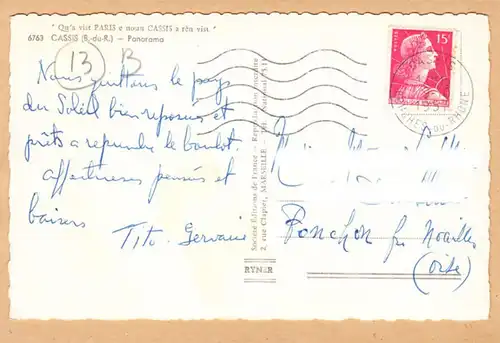 " Qu'a vist PARIS e noun CASSIS a rèn vist "
6763 CASSIS (B.-du-R.) — Panorama
13 B
Nous quittons le pays
du Soleil bien reposés et
prêts a reprendre le boulot.
affectueuses pensées et
baisers
Tito Germaine
Société Editions de France — Reproduction interdite
2, rue Clapier, MARSEILLE
RYNER
15F
DU-RHONE
Ponchon par Noailles
(Oise)